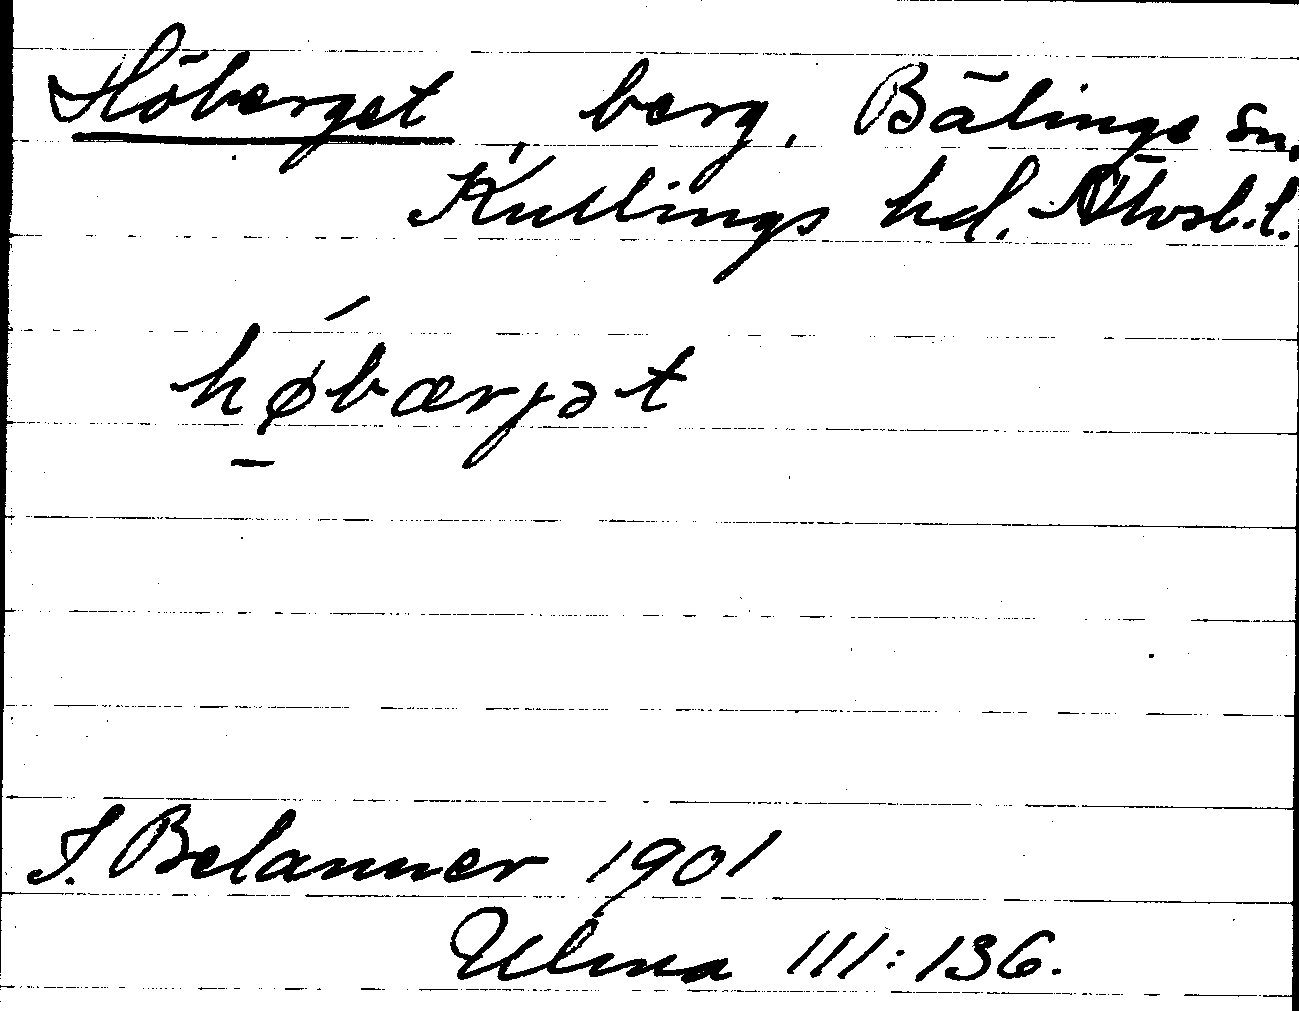 Höberget, berg, Bälinge sn,
Kullings hd. Älvsb. l.
hǿ̱bærjət
I. Belanner 1901
Ulma 111:136.